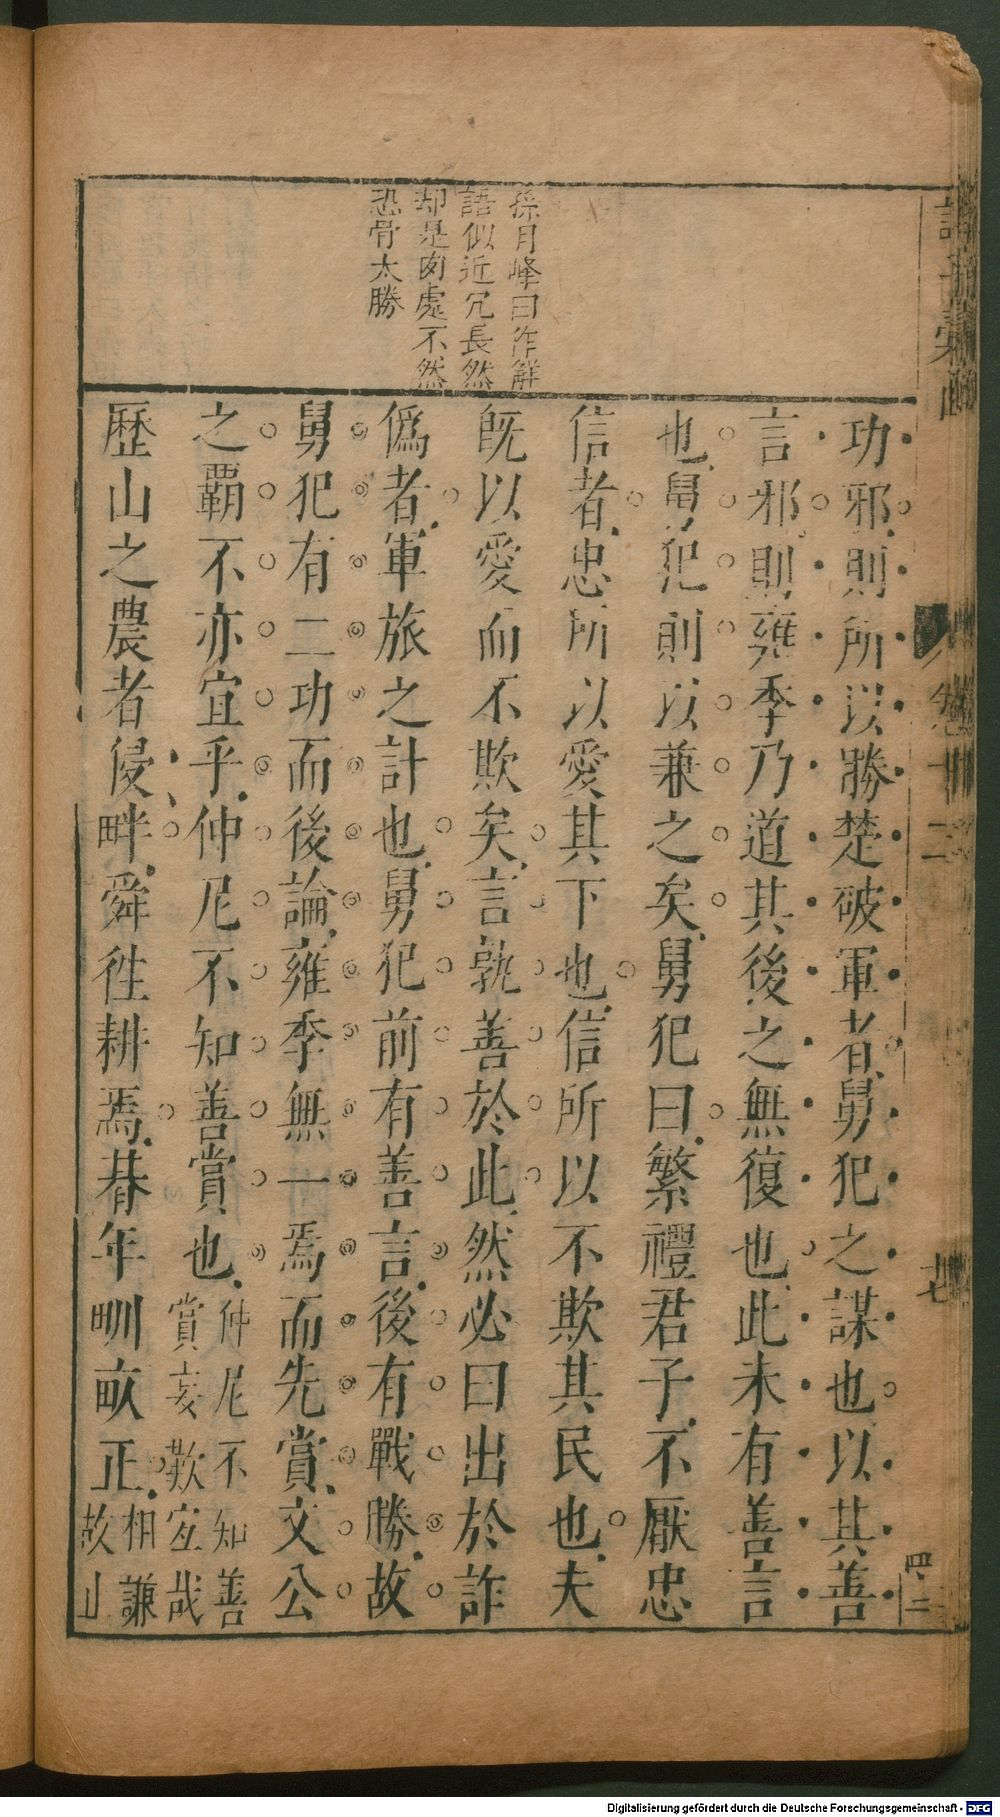 孫月峰曰作解
語似近冗長然
却是肉處不然
恐骨太勝
功邪則所以勝楚破軍者舅犯之謀也以其善
言邪則雍季乃道其後之無復也此未有善言
也舅犯則以兼之矣舅犯曰繁禮君子不厭忠
信者忠所以愛其下也信所以不欺其民也夫
旣以愛而不欺矣言孰善於此然必曰出於詐
僞者軍旅之計也舅犯前有善言後有戰勝故
舅犯有二功而後論雍季無一焉而先賞文公
之霸不亦宜乎仲尼不知善賞也
仲尼不知善
賞妄歎宜哉
歷山之農者侵畔舜徃耕焉朞年甽畝正
相謙
故山
卷十二
七
四二
Digitalisierung gefördert durch die Deutsche Forschungsgemeinschaft - DFG